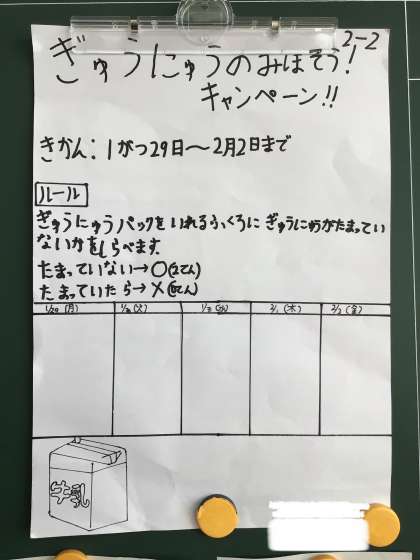 2-2
ぎゅうにゅうのみほそう!
キャンペーン!!
きかん:1がつ29日〜2月2日まで
ルール
ぎゅうにゅうパックをいれるふくろに ぎゅうにゅうがたまってい
ないかをしらべます.
たまっていない→○(2てん)
たまっていたら→×(0てん)
1/29(月) 1/30(火) 1/31(水) 2/1(木) 2/2(金)
牛乳